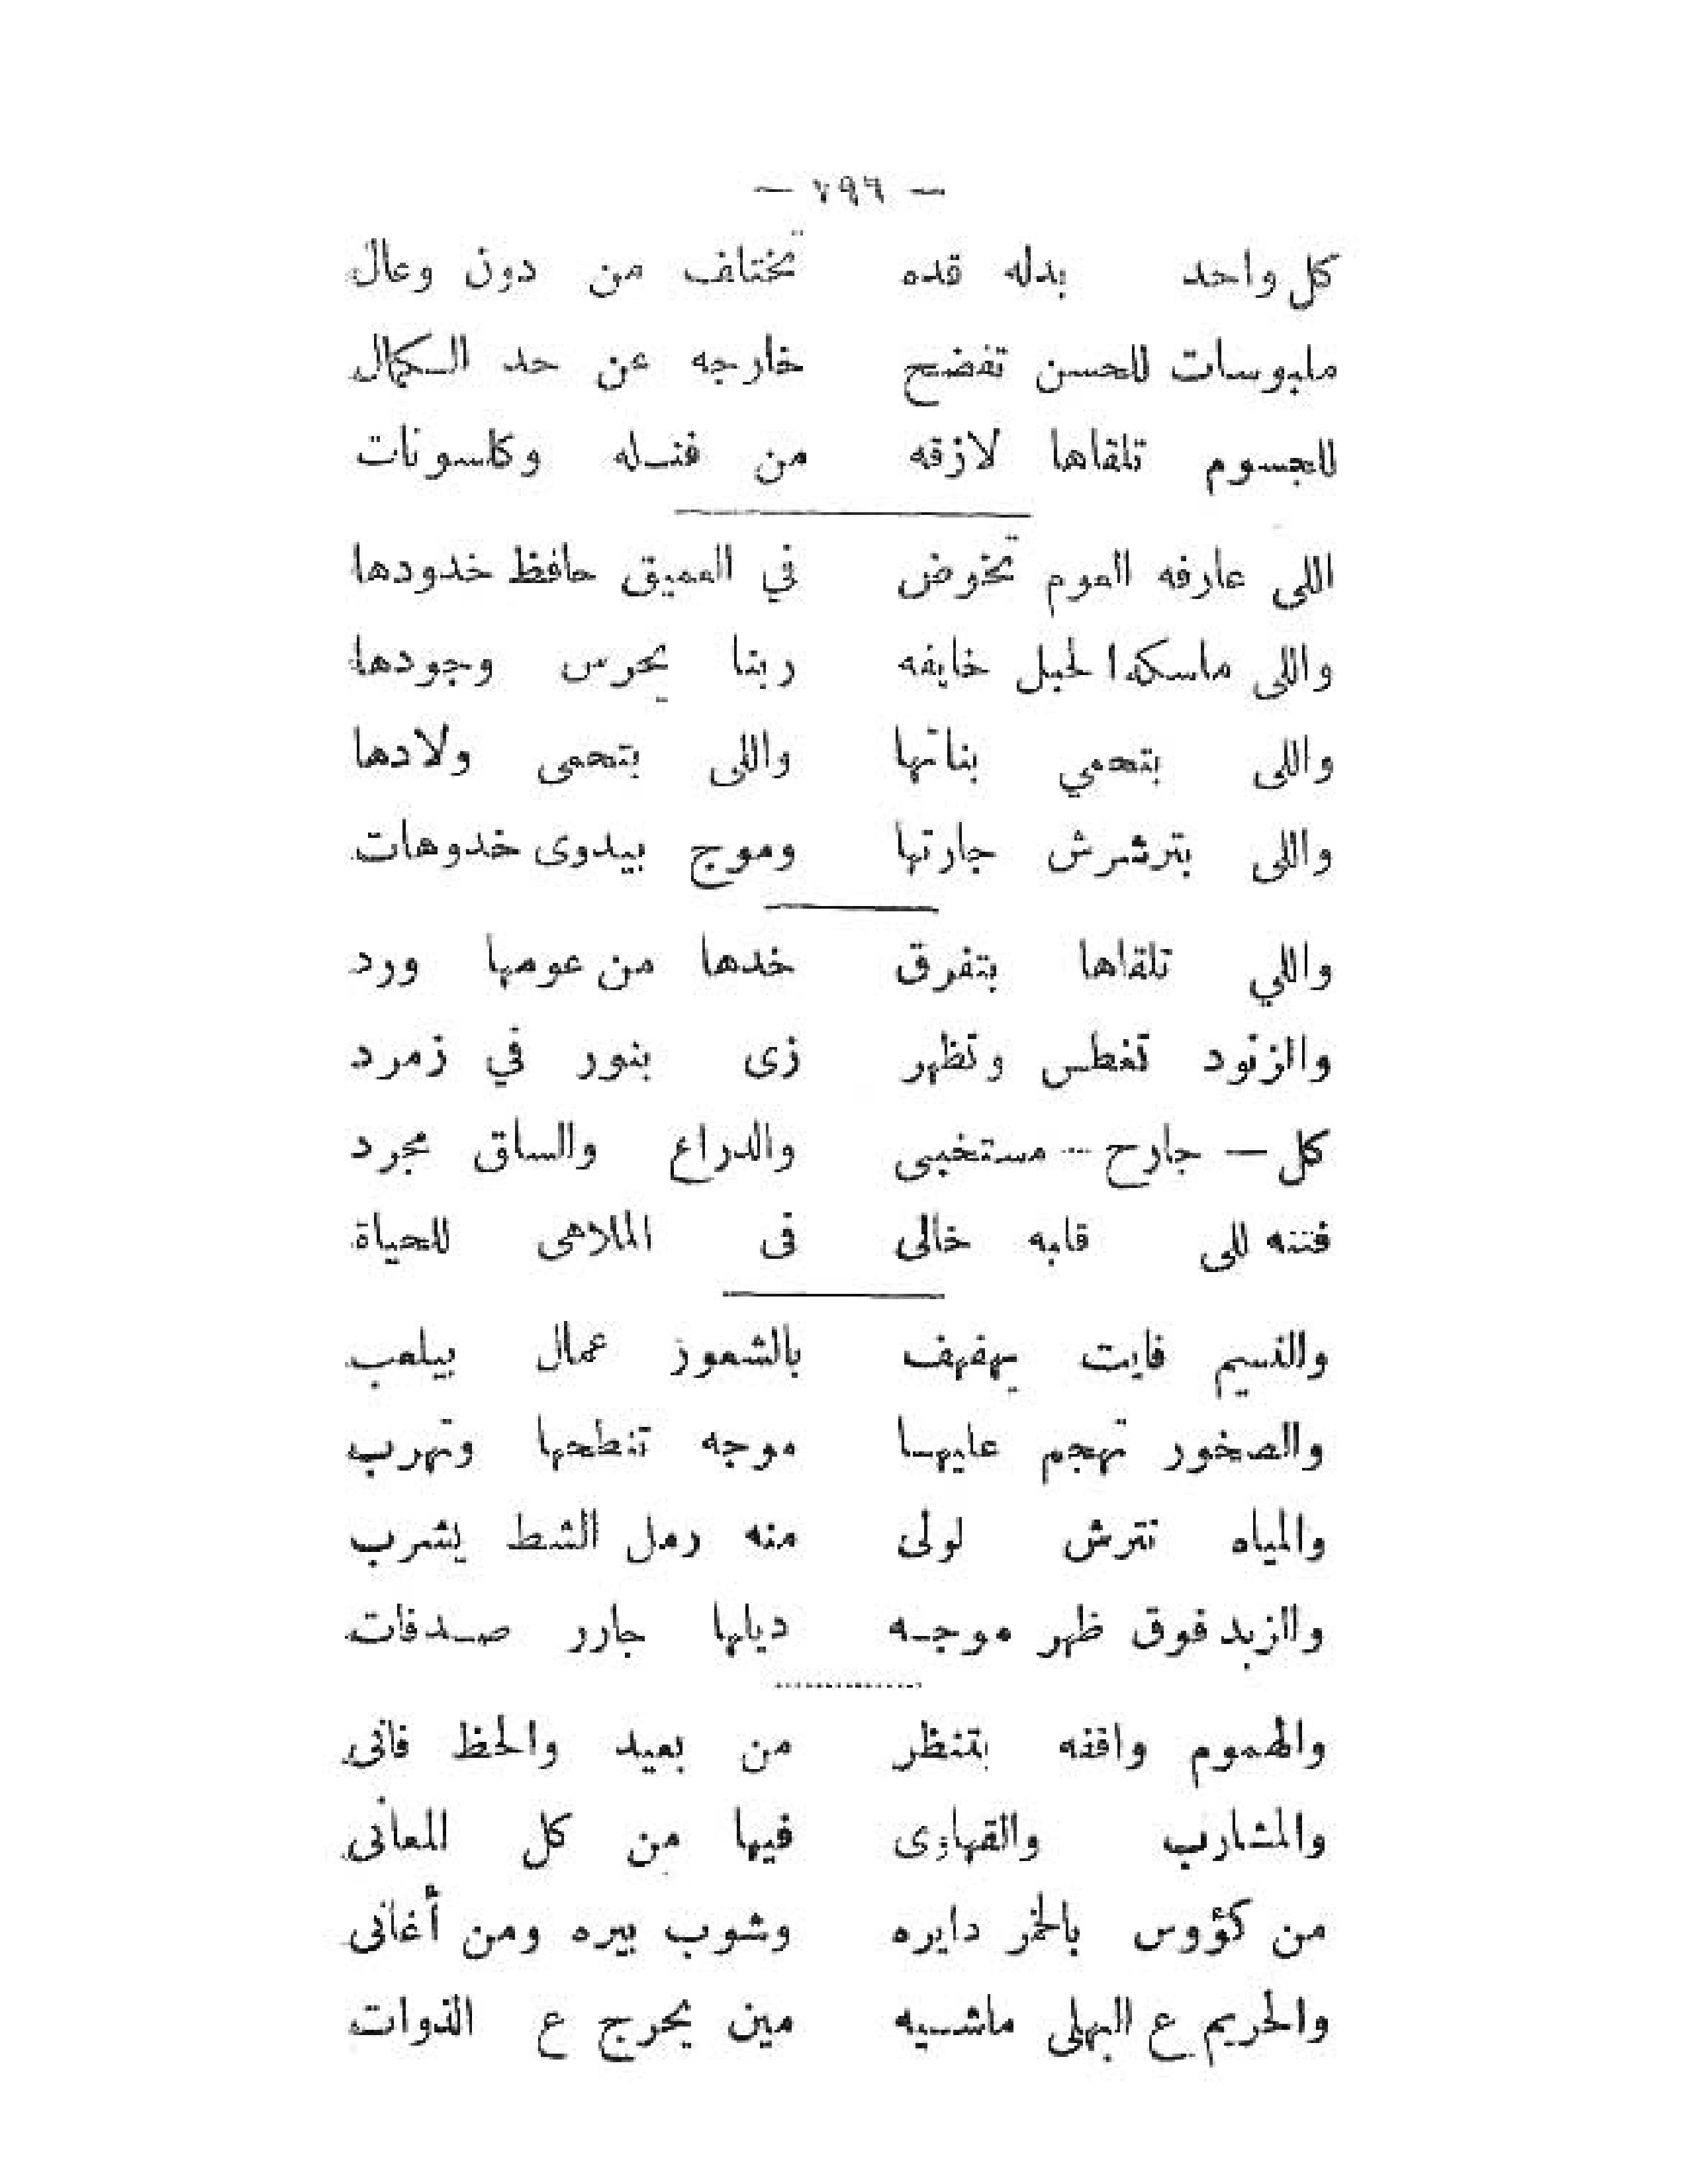 — ٧٩٦ —
كل واحد بدله قده تختلف من دون وعال
ملبوسات للحسن تفضح خارجه عن حد الكمال
للجسوم تلقاها لازقه من فنله وكلسونات
اللى عارفه العوم تخوض في العميق حافظ خدودها
واللى ماسكه الحبل خايفه ربنا يحرس وجودها
واللى بتحمي بناتها واللى بتحمى ولادها
واللى بترشرش جارتها وموج بيدوى خدوهات
واللي تلقاها بتفرق خدها من عومها ورد
والزنود تغطس وتظهر زى بنور في زمرد
كل — جارح — مستخبى والدراع والساق مجرد
فتنه للى قلبه خالى فى الملاهى للحياة
والنسيم فايت يهفهف بالشعور عمال بيلعب
والصخور تهجم عليها موجه تنطحها وتهرب
والمياه تترش لولى منه رمل الشط يشرب
والزبد فوق ظهر موجه ديلها جارر صدفات
والهموم واقفه بتنظر من بعيد والحظ فانى
والمشارب والقهاوى فيها من كل المعانى
من كؤوس بالخمر دايره وشوب بيره ومن أغانى
والحريم ع البهلى ماشيه مين يحرج ع الذوات